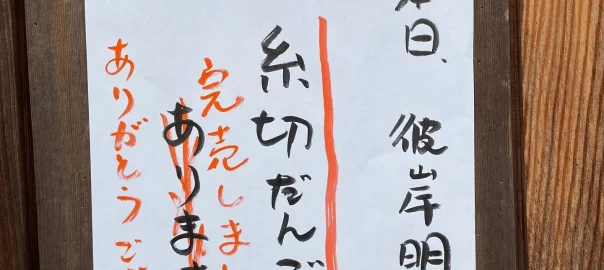 本日、彼岸明
糸切だんご
あります
完売しまし
ありがとうご